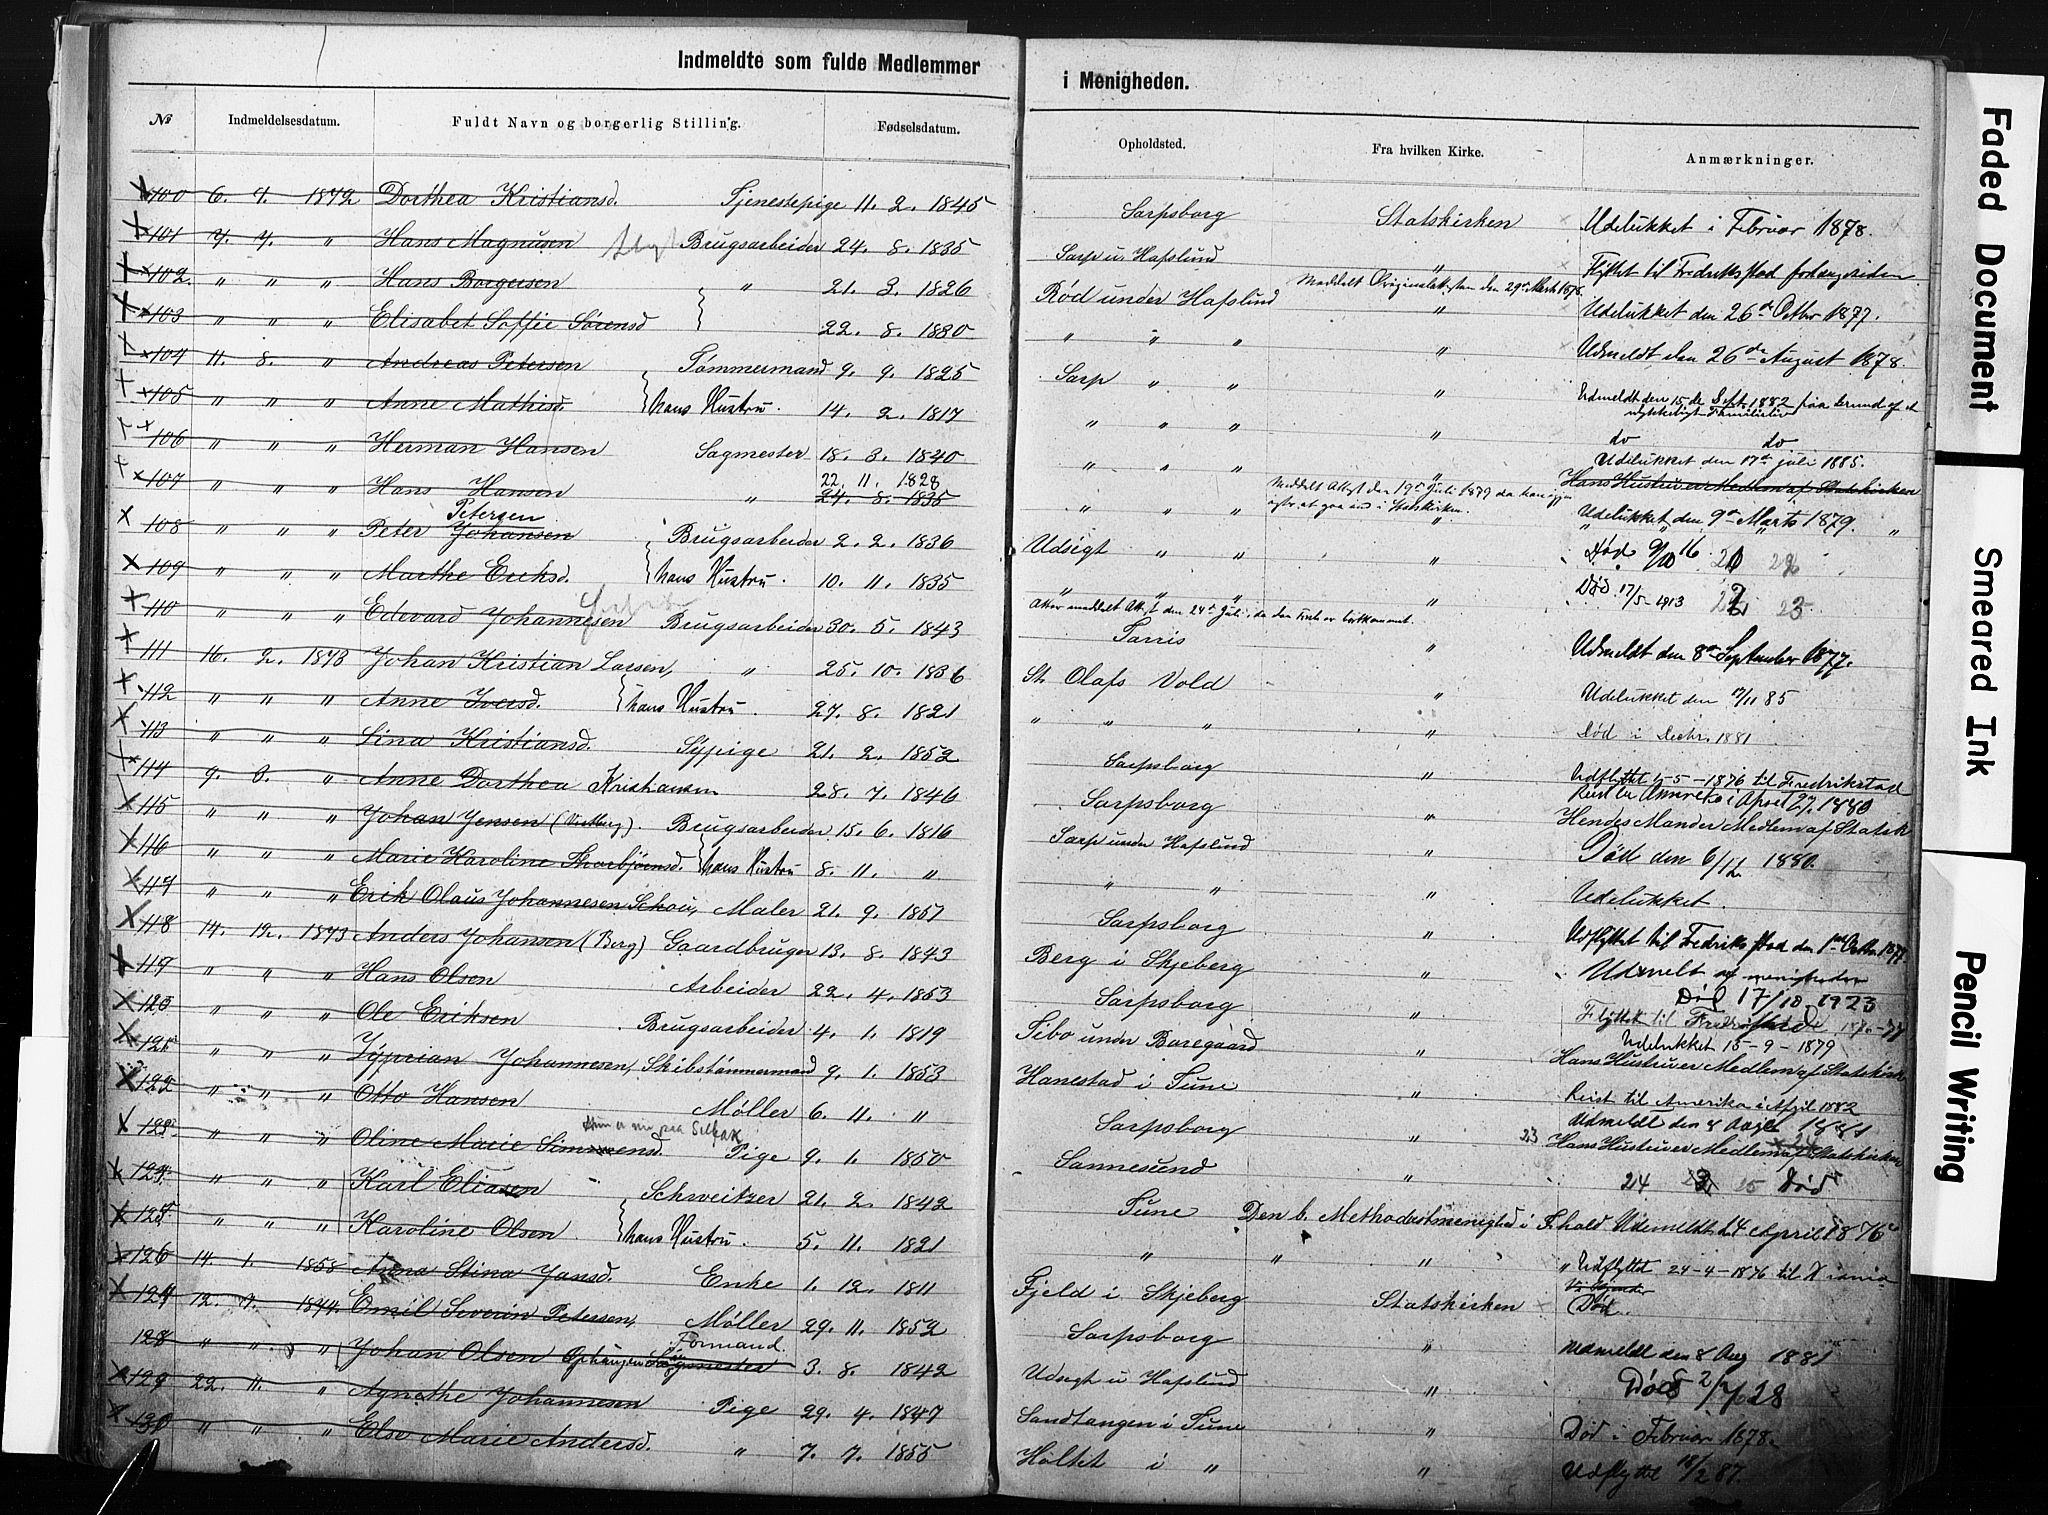 Indmeldte som fulde Medlemmer i Menigheden.
№ Indmeldelsesdatum. Fuldt Navn og borgerlig Stilling. Fødselsdatum. Opholdsted. Fra hvilken Kirke. Anmærkninger.
100 6. 7. 1872 Dorthea Kristiansd. Tjenestepige 11. 2. 1845 Sarpsborg Statskirken Udelukket i Februar 1878.
101 7. 7. " Hans Magnusen Brugsarbeider 24. 8. 1835 Sarp u. Hafslund " Flyttet til Fredrikstad
102 " " " Hans Borgersen " 21. 3. 1826 Rød under Hafslund " Udelukket den 26de Octbr 1877.
103 " " " Elisabet Soffie Sørensd 22. 8. 1830 " " " " Udmeldt den 26de August 1878.
104 11. 8. " Andreas Petersen Tømmermand 9. 9. 1825 Sarp " " " Udmeldt den 15de Septr. 1882 paa Grund af et ulykkeligt Familieliv
105 " " " Anne Mathisd. hans Hustru. 14. 2. 1817 " " " " do do
106 " " " Herman Hansen Sagmester 18. 3. 1840 " " " " Udelukket den 17de juli 1885.
Hans Hustru er Medlem af Statskirken
107 " " " Hans Hansen " 22. 11. 1828 24. 8. 1835 " " " " Udelukket den 9de Marts 1879.
108 " " " Peter Petersen Johansen Brugsarbeider 2. 2. 1836 Udsigt " " " Død 9/10 16.
109 " " " Marthe Eriksd. hans Hustru. 10. 11. 1835 " " " " Død 17/5-1913 23
110 " " " Edevard Johannesen Brugsarbeider 30. 5. 1843 Tarris " Udmeldt den 8de September 1877.
111 16. 2. 1873 Johan Kristian Larsen, " 25. 10. 1836 St. Olafs Vold " Udelukket den 17/11 85
112 " " " Anne Iversd. hans Hustru. 27. 8. 1821 " " " " Død i Decbr. 1881
113 " " " Lina Kristiansd. Sypige 21. 2. 1852 Sarpsborg " Udflyttet 15-5-1876 til Fredrikstad
114 9. 3. " Anne Dorthea Kristiansen 28. 7. 1846 Sarpsborg " Reist til Amerika i April 27. 1880
Hendes Mand er Medlem af Statsk
115 " " " Johan Jensen Brugsarbeider 15. 6. 1816 Sarp under Hafslund " Død den 6/12 1880.
116 " " " Marie Karoline Thorbjørnsd. hans Hustru 8. 11. " " " " Udelukket.
117 " " " Erik Olaus Johannesen Schou, Maler 21. 9. 1857 Sarpsborg " Udflyttet til Fredrikstad den 1ste Octbr. 1877.
118 14. 12. 1873 Anders Johansen (Berg) Gaardbruger 13. 8. 1843 Berg i Skjeberg " Udmeldt af menigheden
Død 17/10 1923
119 " " " Hans Olsen Arbeider 22. 4. 1853 Sarpsborg " Flyttet til Fredrikstad 1876-77
120 " " " Ole Eriksen Brugsarbeider 4. 1. 1819 Tibo under Boregaard " Udelukket 15-9-1879
Hans Hustru er Medlem af Statskirk
121 " " " Syprian Johannesen, Skibstømmermand 9. 1. 1853 Hanestad i Tune " Reist til Amerika i April 1882
122 " " " Otto Hansen Møller 6. 11. " Sarpsborg " Udmeldt den 8 Augst 1881
23 Hans Hustru er Medlem af Statskirken
123 " " " Oline Marie Simmensd. Pige 9. 1. 1850 Sannesund " 24 25 Død
124 " " " Karl Eliasen Schweitzer 21. 2. 1842 Tune Den b. Methodistmenighed i F.hald Udmeldt 24 April 1876
125 " " " Karoline Olsen hans Hustru. 5. 11. 1821 " " " " Udflyttet 24-4-1876 til Kiania
126 14. 1. 1858 Anna Stina Jansd. Enke 1. 12. 1811 Fjeld i Skjeberg Statskirken Død.
127 12. 7. 1874. Emil Severin Petersen, Møller 29. 11. 1852 Sarpsborg " Udmeldt den 8 Aug 1881
128 " " " Johan Olsen Ophaugen Formand. Sagmester 3. 8. 1842 Udsigt u Hafslund " Død 2/7/28
129 22. 11. " Agnethe Johannesen Pige 29. 4. 1847 Sandtangen i Tune " Død i Februar 1878.
130 " " " Else Marie Andersd. " 7. 7. 1855 Holtet i " " Udflyttet 18/2 87.
Faded Document
Smeared Ink
Pencil Writing